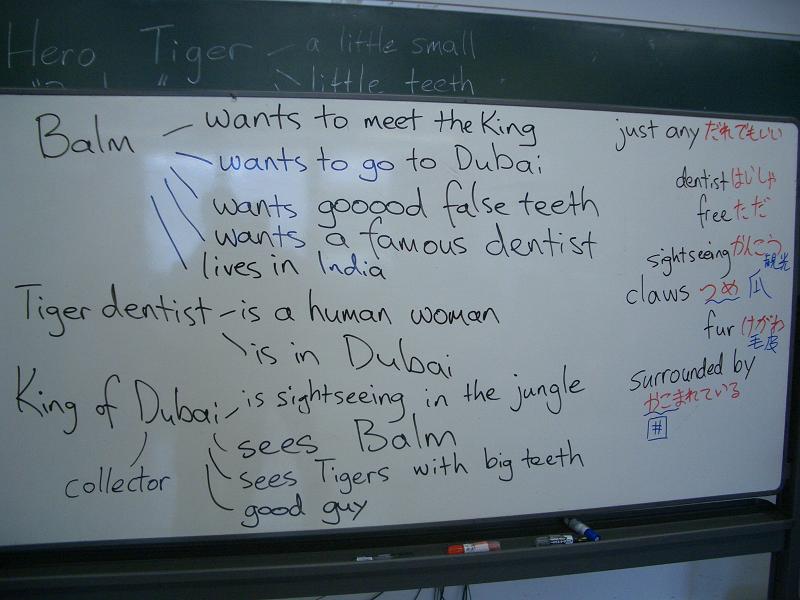 Hero Tiger - a little small
little teeth
Balm - wants to meet the King
wants to go to Dubai
wants gooood false teeth
wants a famous dentist
lives in India
Tiger dentist - is a human woman
is in Dubai
King of Dubai - is sightseeing in the jungle
sees Balm
collector
sees Tigers with big teeth
good guy
just any だれでもいい
dentist はいしゃ
free ただ
sightseeing かんこう
観光
claws つめ 爪
fur けがわ
毛皮
surrounded by
かこまれている
#